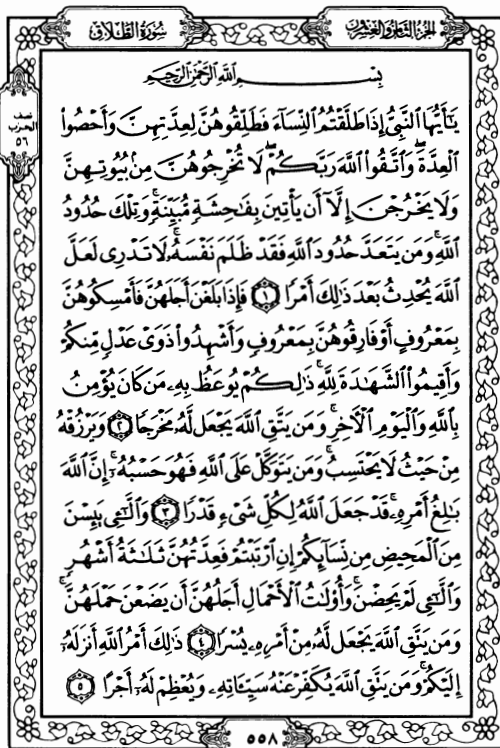 الجزء الثامن والعشرون
سورة الطلاق
نصف
الحزب
٥٦
بِسْمِ ٱللَّهِ ٱلرَّحْمَٰنِ ٱلرَّحِيمِ
يَٰٓأَيُّهَا ٱلنَّبِىُّ إِذَا طَلَّقْتُمُ ٱلنِّسَآءَ فَطَلِّقُوهُنَّ لِعِدَّتِهِنَّ وَأَحْصُواْ
ٱلْعِدَّةَۖ وَٱتَّقُواْ ٱللَّهَ رَبَّكُمْۖ لَا تُخْرِجُوهُنَّ مِنۢ بُيُوتِهِنَّ
وَلَا يَخْرُجْنَ إِلَّآ أَن يَأْتِينَ بِفَٰحِشَةٍ مُّبَيِّنَةٍۚ وَتِلْكَ حُدُودُ
ٱللَّهِۚ وَمَن يَتَعَدَّ حُدُودَ ٱللَّهِ فَقَدْ ظَلَمَ نَفْسَهُۥۚ لَا تَدْرِى لَعَلَّ
ٱللَّهَ يُحْدِثُ بَعْدَ ذَٰلِكَ أَمْرًا ١ فَإِذَا بَلَغْنَ أَجَلَهُنَّ فَأَمْسِكُوهُنَّ
بِمَعْرُوفٍ أَوْ فَارِقُوهُنَّ بِمَعْرُوفٍ وَأَشْهِدُواْ ذَوَىْ عَدْلٍ مِّنكُمْ
وَأَقِيمُواْ ٱلشَّهَٰدَةَ لِلَّهِۚ ذَٰلِكُمْ يُوعَظُ بِهِۦ مَن كَانَ يُؤْمِنُ
بِٱللَّهِ وَٱلْيَوْمِ ٱلْأَخِرِۚ وَمَن يَتَّقِ ٱللَّهَ يَجْعَل لَّهُۥ مَخْرَجًا ٢ وَيَرْزُقْهُ
مِنْ حَيْثُ لَا يَحْتَسِبُۚ وَمَن يَتَوَكَّلْ عَلَى ٱللَّهِ فَهُوَ حَسْبُهُۥٓۚ إِنَّ ٱللَّهَ
بَٰلِغُ أَمْرِهِۦۚ قَدْ جَعَلَ ٱللَّهُ لِكُلِّ شَىْءٍ قَدْرًا ٣ وَٱلَّٰٓـِٔى يَئِسْنَ
مِنَ ٱلْمَحِيضِ مِن نِّسَآئِكُمْ إِنِ ٱرْتَبْتُمْ فَعِدَّتُهُنَّ ثَلَٰثَةُ أَشْهُرٍ
وَٱلَّٰٓـِٔى لَمْ يَحِضْنَۚ وَأُوْلَٰتُ ٱلْأَحْمَالِ أَجَلُهُنَّ أَن يَضَعْنَ حَمْلَهُنَّۚ
وَمَن يَتَّقِ ٱللَّهَ يَجْعَل لَّهُۥ مِنْ أَمْرِهِۦ يُسْرًا ٤ ذَٰلِكَ أَمْرُ ٱللَّهِ أَنزَلَهُۥٓ
إِلَيْكُمْۚ وَمَن يَتَّقِ ٱللَّهَ يُكَفِّرْ عَنْهُ سَيِّـَٔاتِهِۦ وَيُعْظِمْ لَهُۥٓ أَجْرًا ٥
٥٥٨